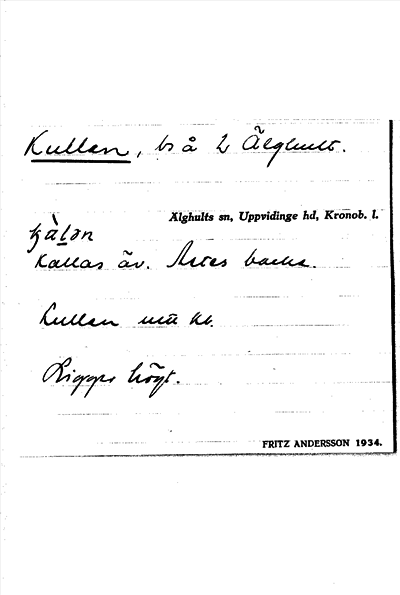 Kullen, bs å 2 Älghult.
Älghults sn, Uppvidinge hd, Kronob. l.
Kallas äv. backe.
Kullen
Ligger högt.
FRITZ ANDERSSON 1934.